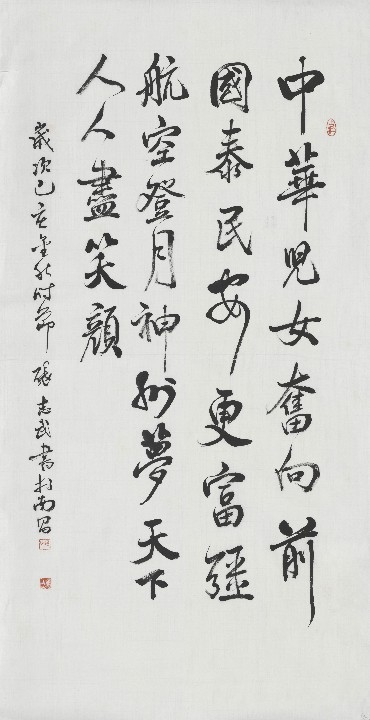 中華兒女奮向前
國泰民安更富彊
航空登月神州夢天下
人人盡笑顏
歲次己亥金秋時節 張志武書於南昌